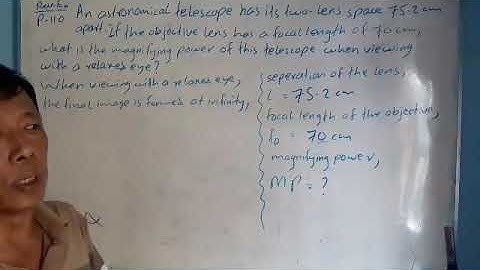 P-110 An astronomical telescope has its two-lens space 75.2 cm
apart. If the objective lens has a focal length of 70 cm,
what is the magnifying power of this telescope when viewing
with a relaxes eye?
When viewing with a relaxes eye,
the final image is formed at infinity,
seperation of the lens,
L = 75.2 cm
focal length of the objective,
fo = 70 cm
magnifying power,
MP = ?